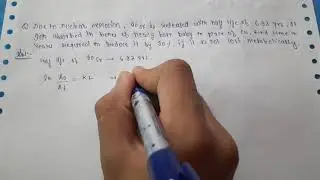 Q Due to nuclear explosion, 90Sr is released with half life of 6.93 yrs, it
gets absorbed in bones of newly born baby in place of Ca, find time in
years required to reduce it by 90%, if it is not lost metabolically
Half life of 90Sr → 6.93 yrs.
ln A0/At = Kt